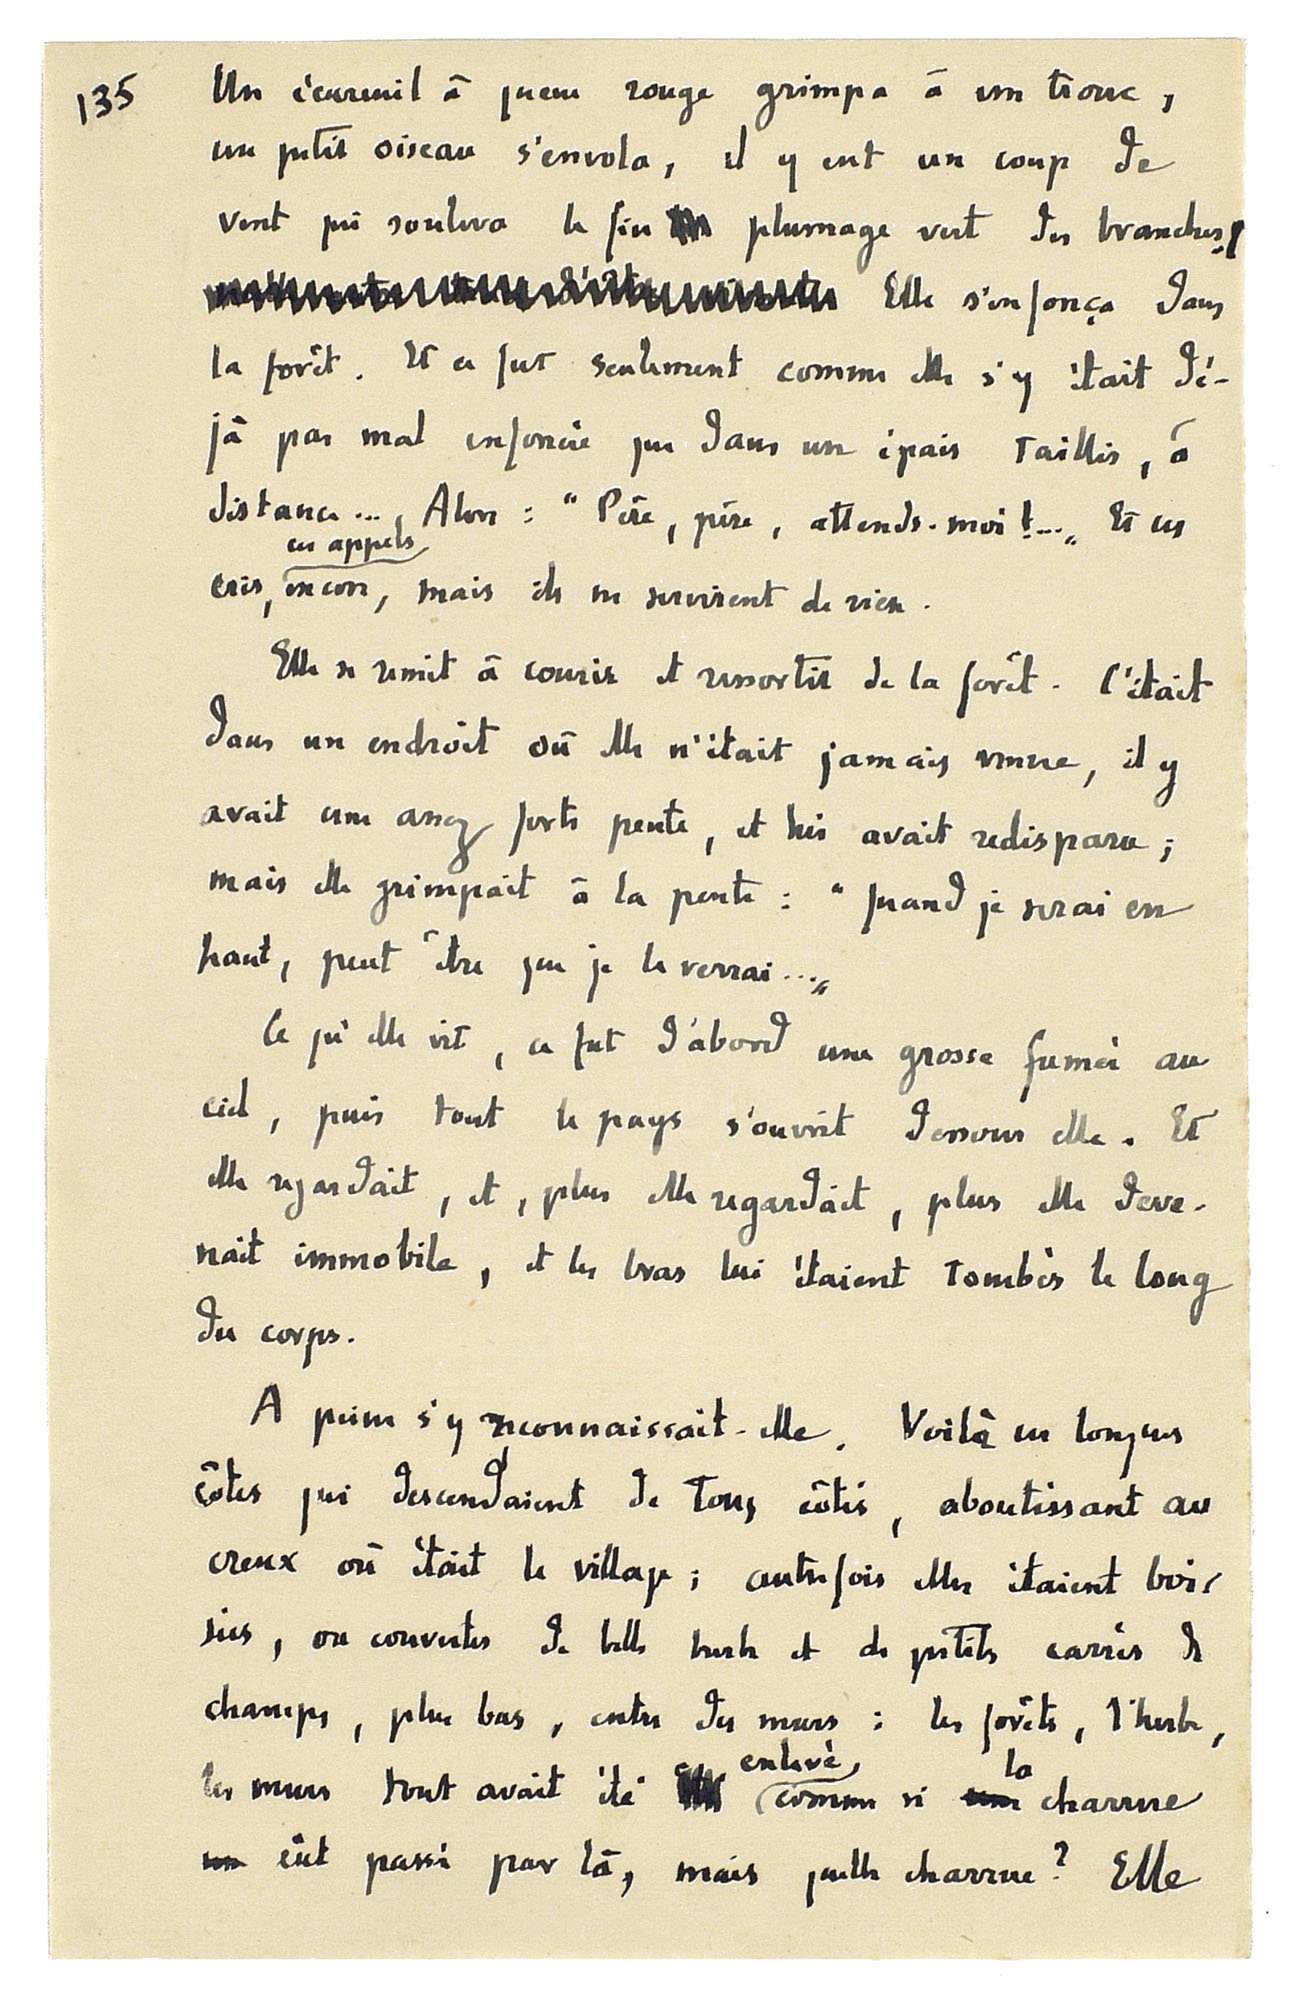 135
Un écureuil à queue rouge grimpa à un tronc,
un petit oiseau s'envola, il y eut un coup de
vent qui souleva le fin plumage vert des branches.
Elle s'enfonça dans
la forêt. Et ce fut seulement comme elle s'y était dé-
jà pas mal enfoncée que dans un épais taillis, à
distance..., Alors : " Père, père, attends-moi !... „ Et ces
ces appels
cris, encore, mais ils ne servirent de rien.
Elle se remit à courir et ressortit de la forêt. C'était
dans un endroit où elle n'était jamais venue, il y
avait une assez forte pente, et lui avait redisparu ;
mais elle grimpait à la pente : " Quand je serai en
haut, peut être que je le verrai... „
Ce qu'elle vit, ce fut d'abord une grosse fumée au
ciel, puis tout le pays s'ouvrit dessous elle. Et
elle regardait, et, plus elle regardait, plus elle deve-
nait immobile, et les bras lui étaient tombés le long
du corps.
A peine s'y reconnaissait-elle. Voilà ces longues
côtes qui descendaient de tous côtés, aboutissant au
creux où était le village ; autrefois elles étaient boi-
sées, ou couvertes de belle herbe et de petits carrés de
champs, plus bas, entre des murs : les forêts, l'herbe,
enlevé, la
les murs tout avait été comme si une charrue
eût passé par là, mais quelle charrue ? Elle